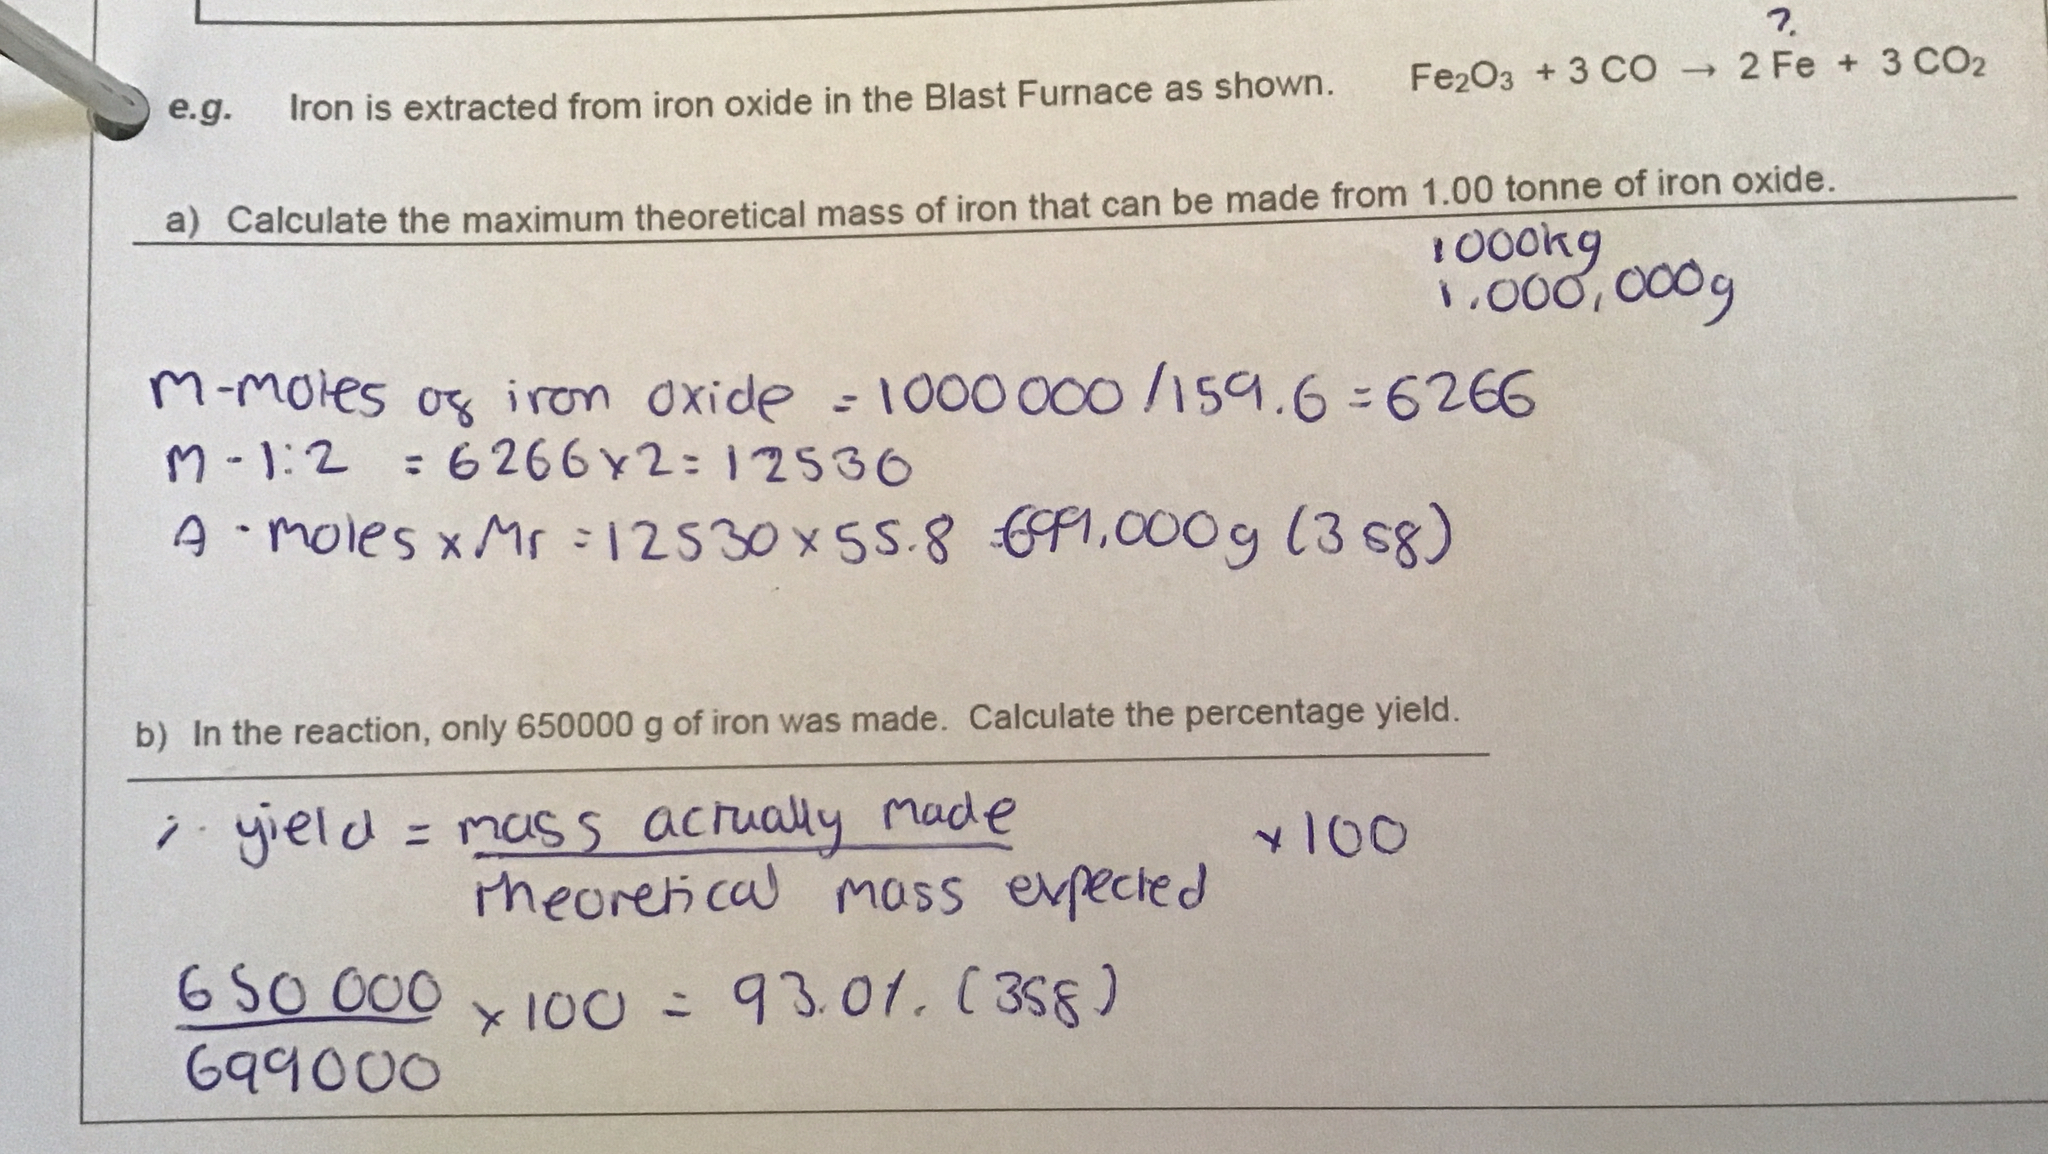 ?.
e.g. Iron is extracted from iron oxide in the Blast Furnace as shown. Fe₂O₃ + 3 CO → 2 Fe + 3 CO₂
a) Calculate the maximum theoretical mass of iron that can be made from 1.00 tonne of iron oxide.
1000kg
1.000,000g
M-moles of iron oxide = 1000000/159.6 = 6266
M - 1:2 = 6266x2 = 12530
A - moles x Mr = 12530 x 55.8 = 699,000g (3 s8)
b) In the reaction, only 650000 g of iron was made. Calculate the percentage yield.
% yield = mass actually made x 100
theoretical mass expected
650 000 x 100 = 93.0%. (3s8)
699000